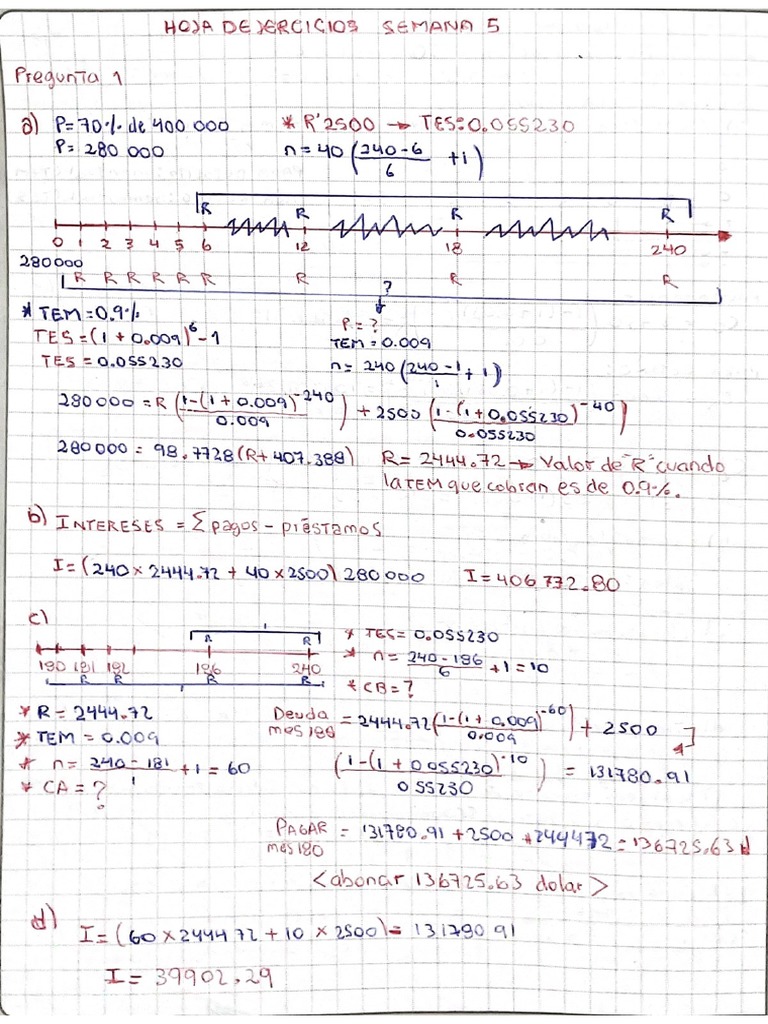 HOJA DE JERCICIOS SEMANA 5
Pregunta 1
a) P=70% de 400 000 * R'2500 → TES=0.055230
P= 280 000 n= 40 (240-6/6 +1)
R R R R
0 1 2 3 4 5 6 12 18 240
280000 R R R R R R R R
?
* TEM=0.9% P=?
TES=(1+0.009)^6-1 TEM=0.009
TES=0.055230 n= 240 (240-1/1 +1)
280000=R (1-(1+0.009)^-240/0.009) + 2500 (1-(1+0.055230)^-40/0.055230)
280000 = 98.7728(R+407.388) R= 2444.72 → Valor de "R" cuando
la TEM que cobran es de 0.9%.
b) INTERESES = Σ pagos - préstamos
I=(240×2444.72 + 40×2500) 280000 I=406772.80
c)
R R * TES= 0.055230
180 181 182 186 240 * n= 240-186/6 +1=10
R R R R * CB=?
* R= 2444.72 Deuda mes 180 = 2444.72 (1-(1+0.009)^-60/0.009) + 2500
* TEM = 0.009
* n= 240-181/1 +1= 60 (1-(1+0.055230)^-10/055230) = 131780.91
* CA=?
PAGAR mes 180 = 131780.91 +2500 +244472=136725.63
<abonar 136725.63 dolar>
d) I=(60×2444 72 + 10 × 2500)= 131780 91
I= 39902.29